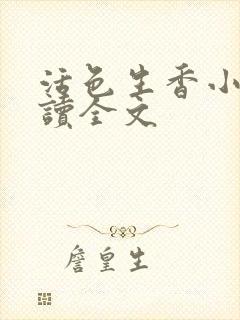 活色生香小
讀全文
詹皇生